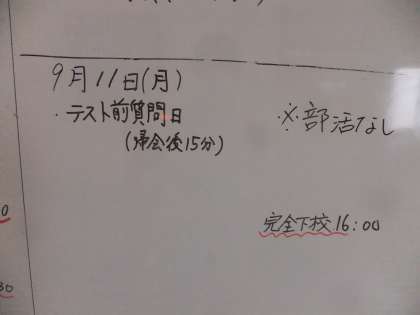 9月11日(月)
・テスト前質問日
(帰会後15分)
※部活なし
完全下校16:00
0
30